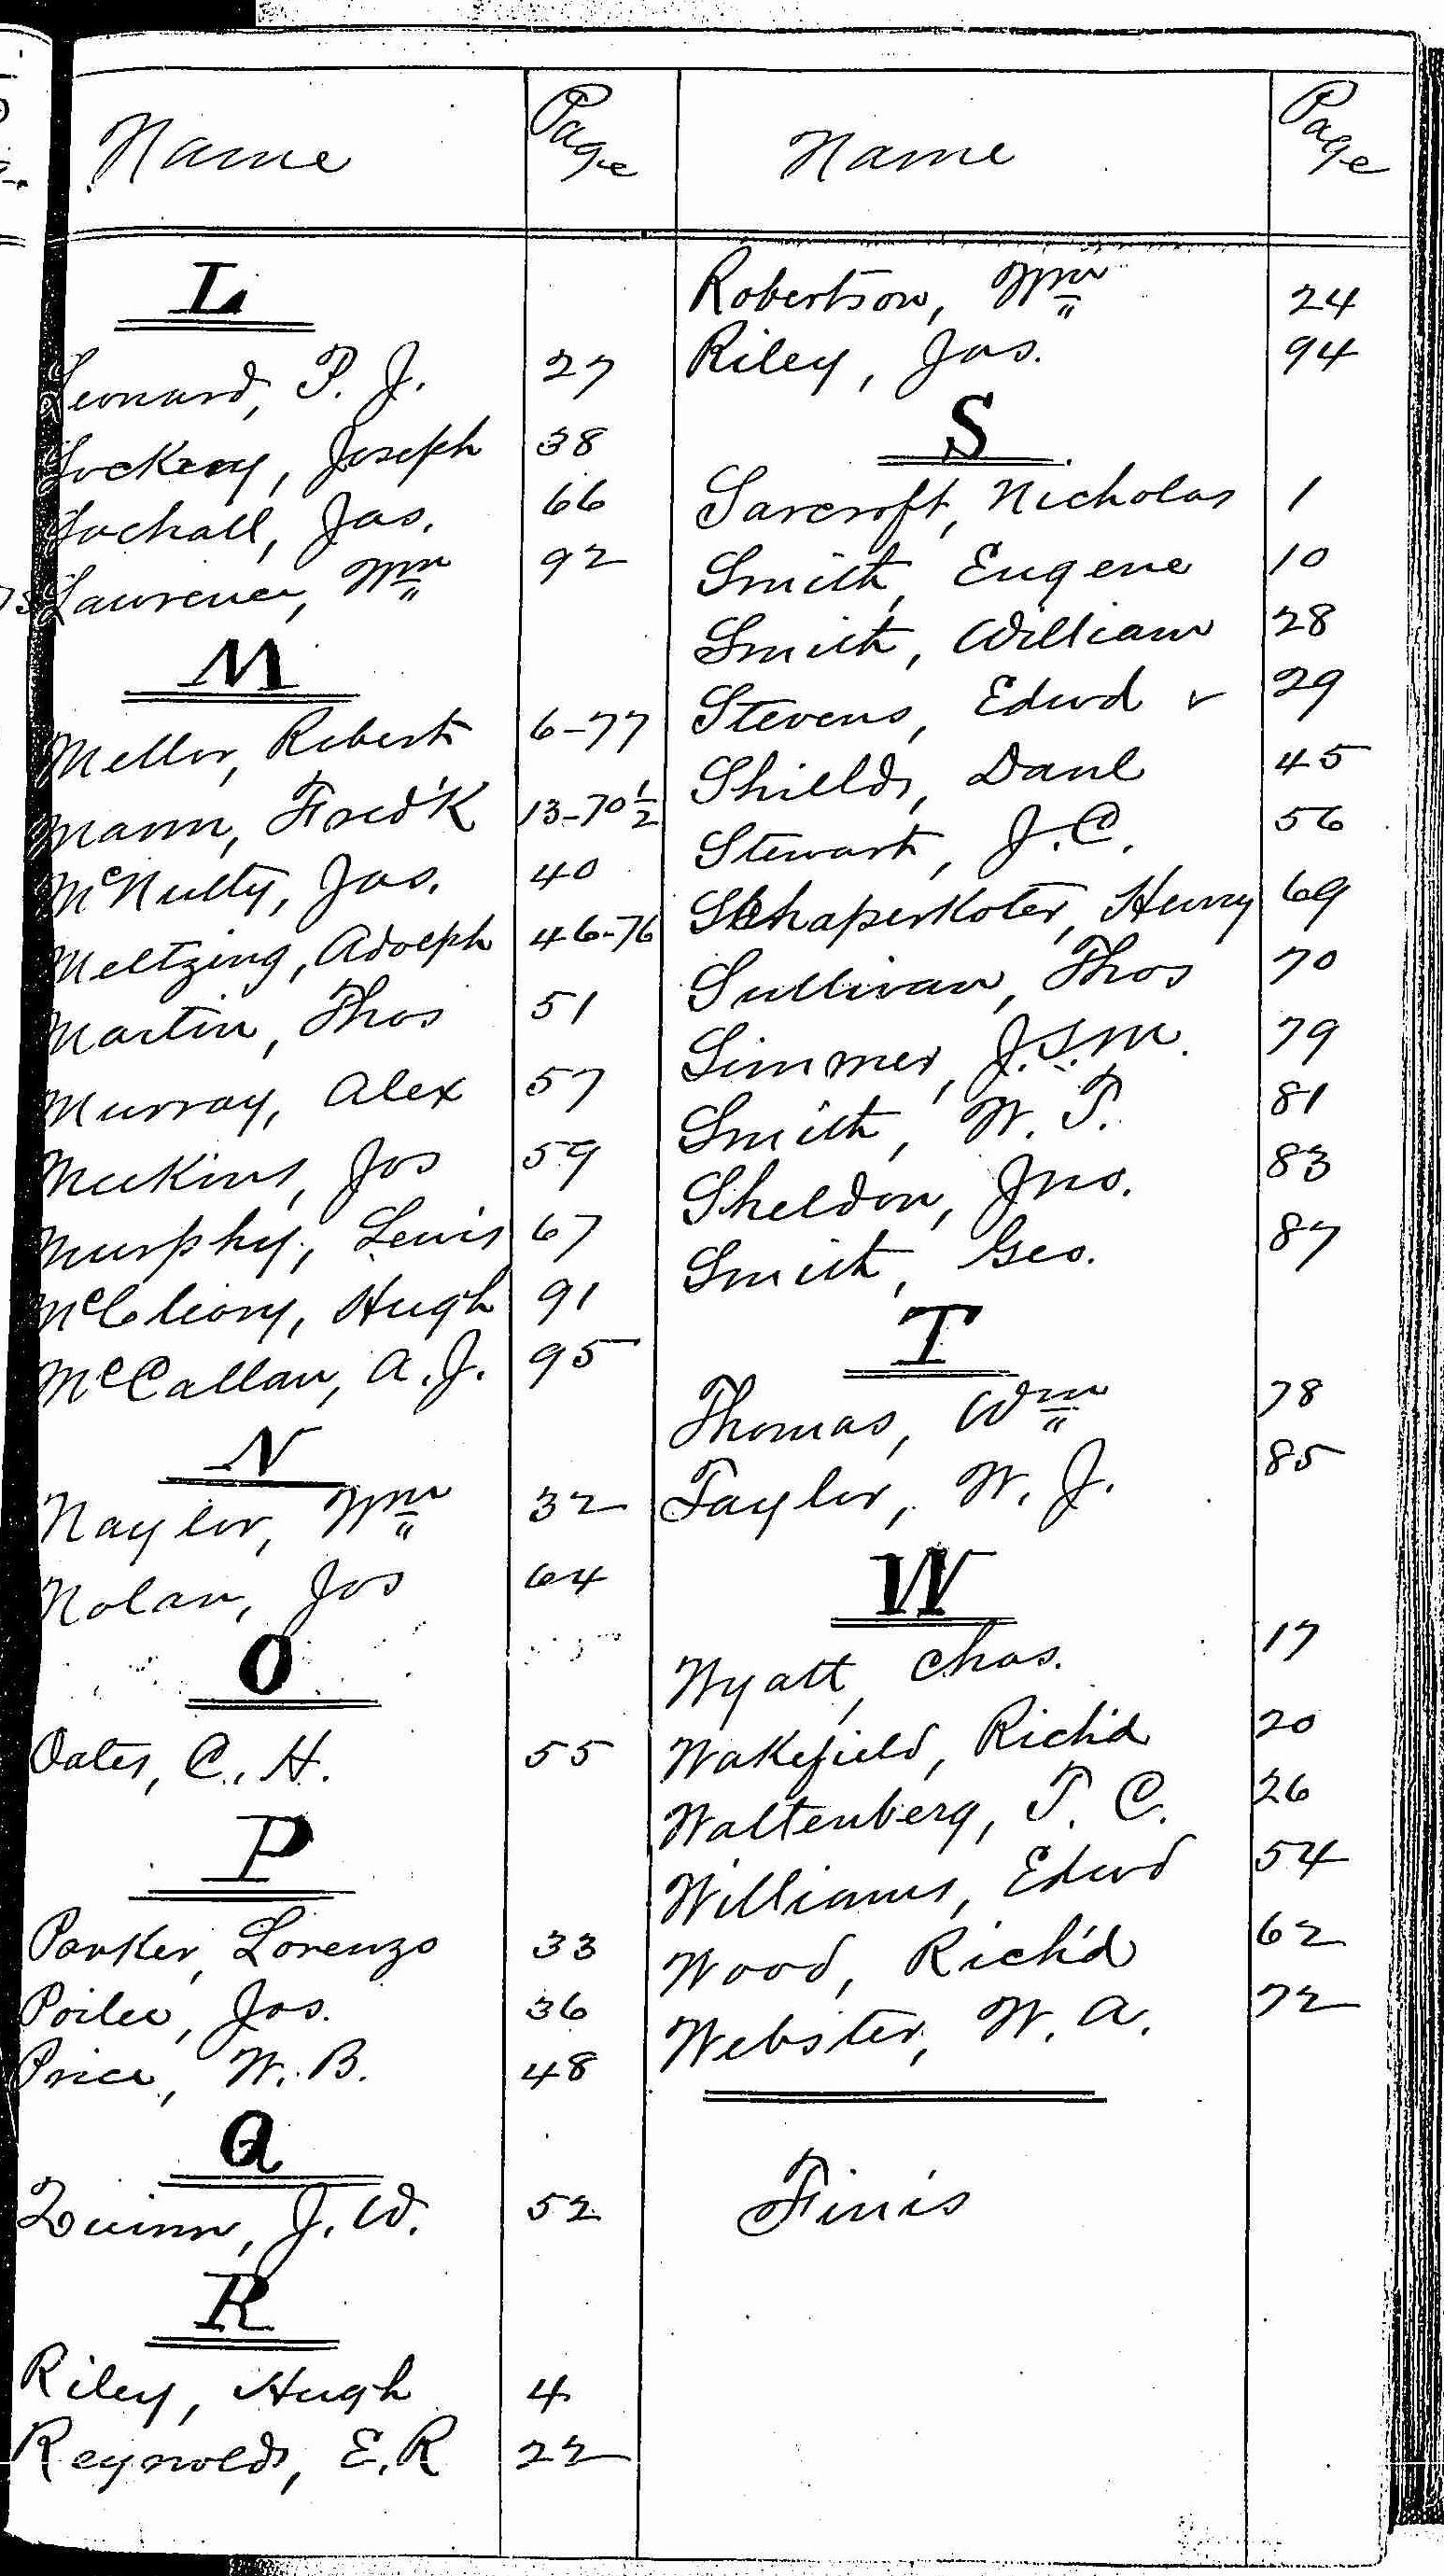 Name Page
L
Leonard, P. J. 27
Lockery, Joseph 38
Lochall, Jas. 66
Lawrence, Wm 92
M
Mellor, Robert 6-77
Mann, Fred'k 13-70½
McNulty, Jas. 40
Meltzing, Adolph 46-76
Martin, Thos 51
Murray, Alex 57
Meekins, Jos 59
Murphy, Lewis 67
McCleory, Hugh 91
McCallan, A. J. 95
N
Naylor, Wm 32
Nolan, Jos 64
O
Oates, C. H. 55
P
Parker, Lorenzo 33
Poilee, Jos. 36
Price, W. B. 48
Q
Quinn, J. W. 52
R
Riley, Hugh 4
Reynolds, E. R 22
Name Page
Robertson, Wm 24
Riley, Jas. 94
S
Sarcroft, Nicholas 1
Smith, Eugene 10
Smith, William 28
Stevens, Edwd ✓ 29
Shields, Danl 45
Stewart, J. C. 56
Schaperkoter, Henry 69
Sullivan, Thos 70
Simmer, J. S. M. 79
Smith, W. T. 81
Sheldon, Jno. 83
Smith, Geo. 87
T
Thomas, Wm 78
Taylor, W. J. 85
W
Wyatt, Chas. 17
Wakefield, Rich'd 20
Waltenberg, T. C. 26
Williams, Edwd 54
Wood, Rich'd 62
Webster, W. A. 72
Finis